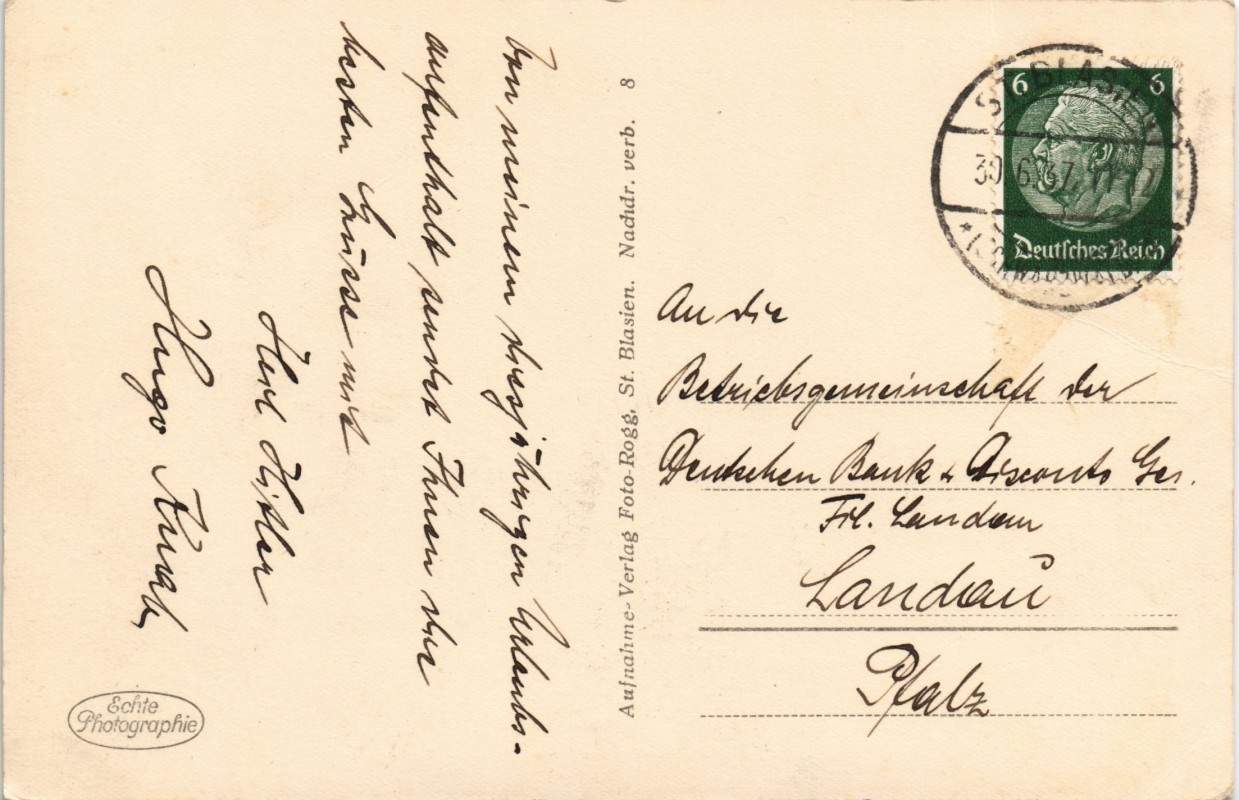 Von meinem diesjährigen Urlaubs-
aufenthalt sendet Ihnen die
besten Grüsse mit
Heil Hitler
Hugo
Echte
Photographie
Aufnahme-Verlag Foto-Rogg, St. Blasien. Nachdr. verb. 8
6 6
Deutsches Reich
ST. BLASIEN
30.6.37. 11-12
* (SCHWARZWALD)
An die
Betriebsgemeinschaft der
Deutschen Bank & Disconto Ges.
Fil. Landau
Landau
Pfalz